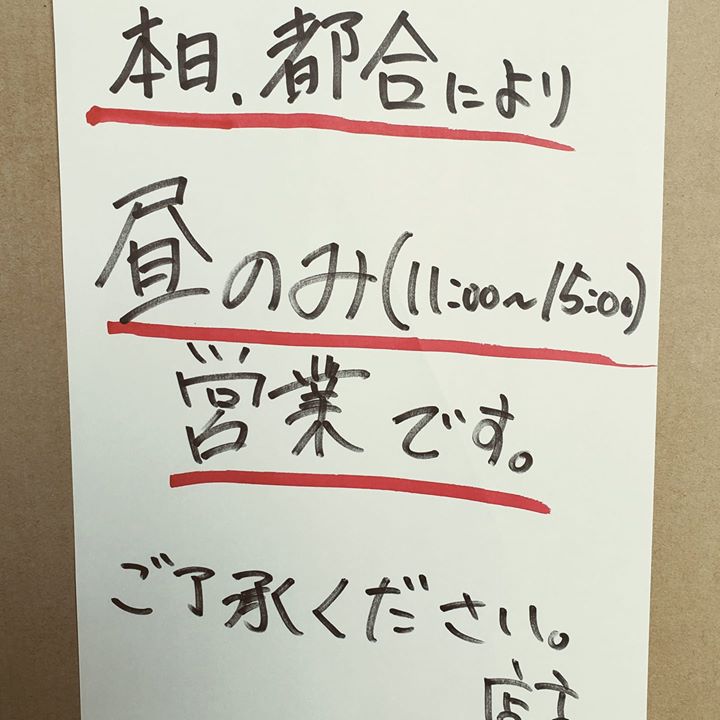 本日、都合により
昼のみ(11:00〜15:00)
営業です。
ご了承ください。
店主